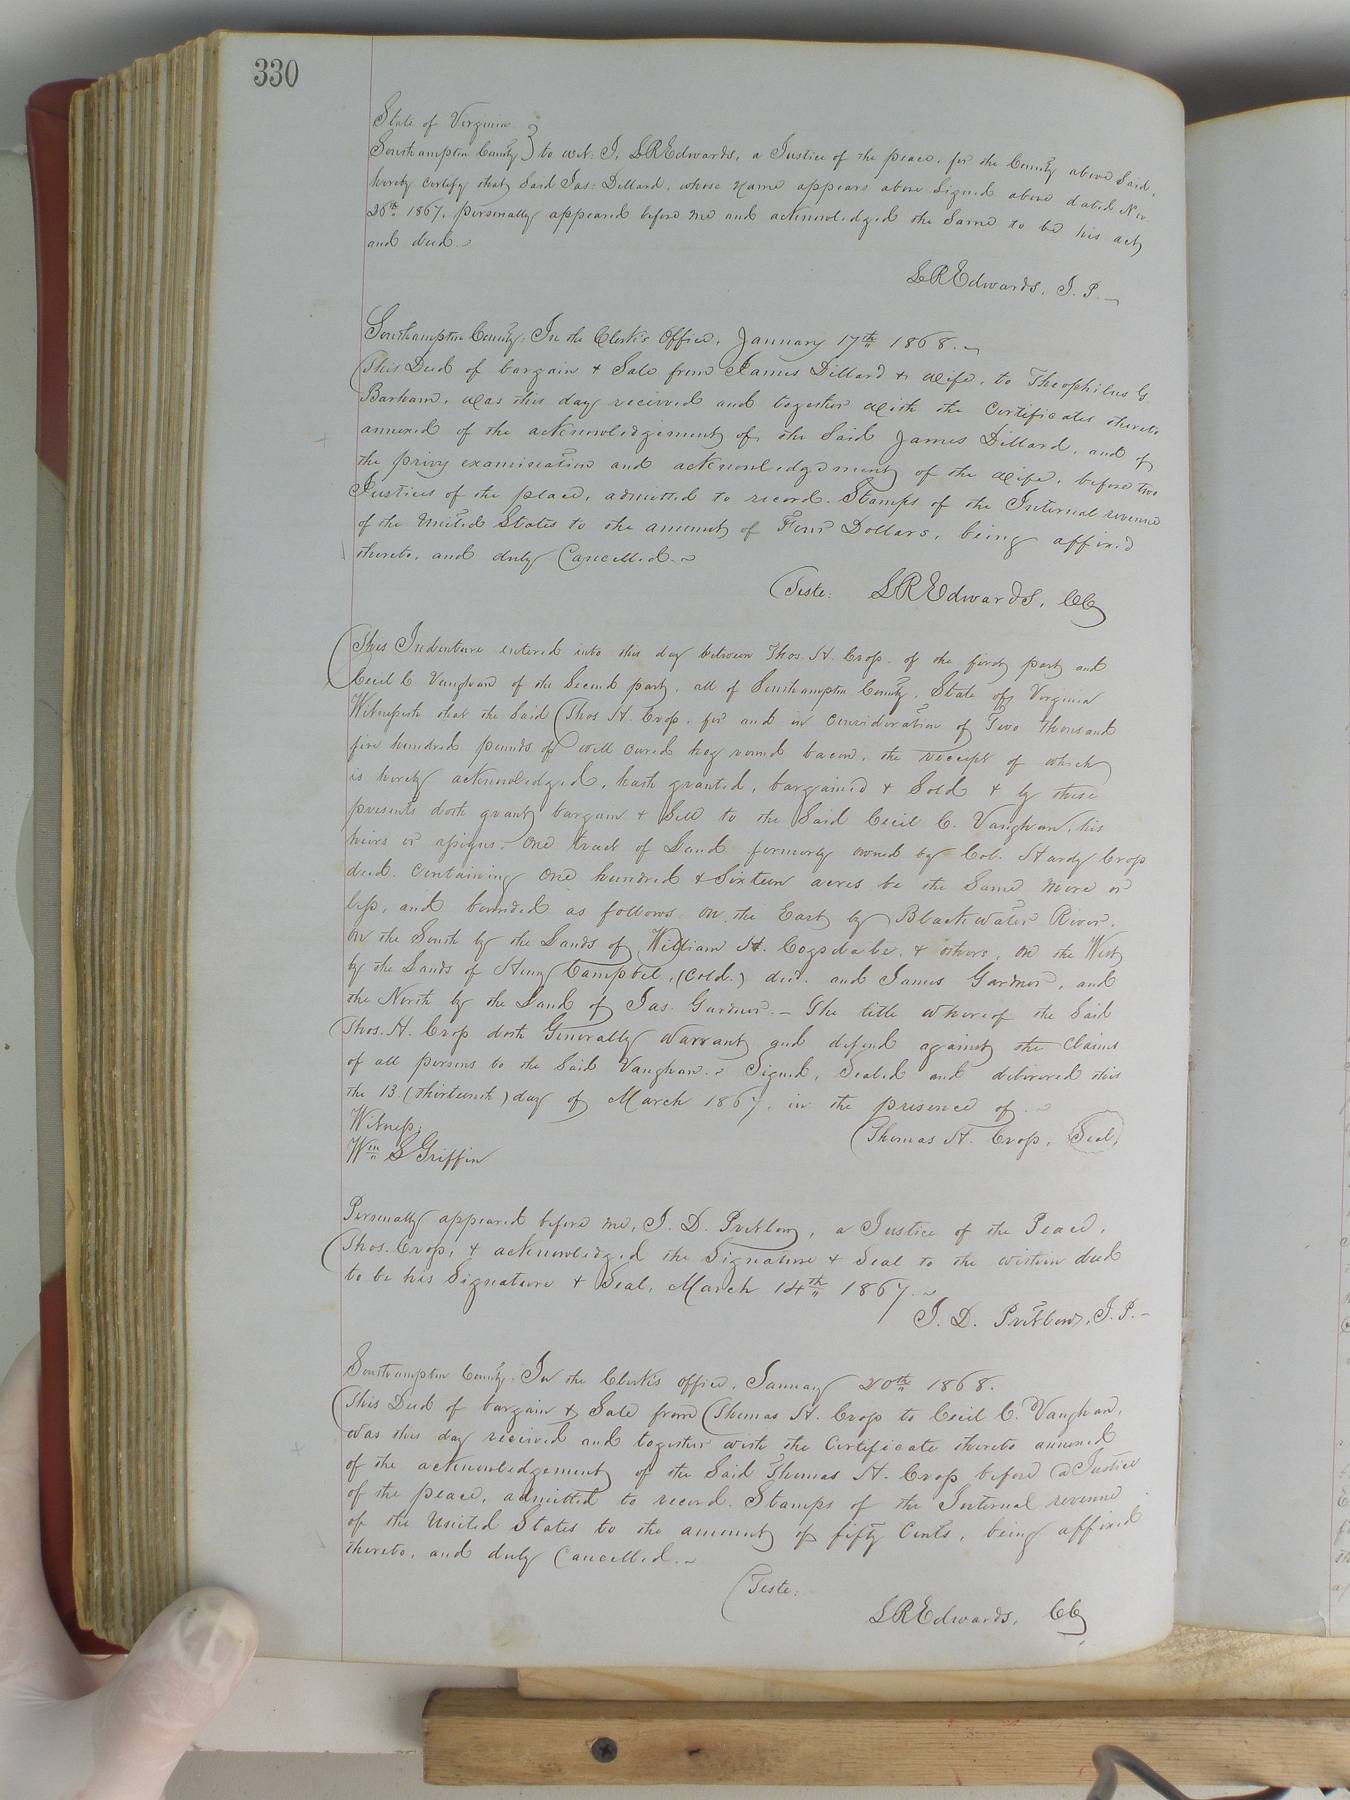 330
State of Virginia
Southampton County } to wit: I, L R Edwards, a Justice of the peace, for the County above Said,
hereby certify that Said Jas: Dillard, whose name appears above Signed above dated Nov
26th 1867, personally appeared before me and acknowledged the Same to be his act
and deed.
L R Edwards, J. P.
Southampton County: In the Clerk's Office, January 17th 1868.
This Deed of bargain & Sale from James Dillard & wife, to Theophilus G
Barham, was this day received and together with the Certificates thereto
annexed of the acknowledgement of the Said James Dillard, and of
the privy examination and acknowledgement of the wife, before two
Justices of the peace, admitted to record. Stamps of the Internal revenue
of the United States to the amount of Four Dollars, being affixed
thereto, and duly Cancelled.
Teste: L R Edwards, CC
This Indenture entered into this day between Thos. H. Crop. of the first part and
Cecil C. Vaughan of the Second part, all of Southampton County, State of Virginia
Witnesseth that the Said Thos H. Crop, for and in consideration of Two Thousand
five hundred pounds of well cured hog round bacon, the receipt of which
is hereby acknowledged, hath granted, bargained & Sold & by these
presents doth grant bargain & Sell to the Said Cecil C. Vaughan, his
heirs or assigns. One tract of Land formerly owned by Col. Hardy Crop
decd. Containing One hundred & Sixteen acres be the Same more or
less, and bounded as follows on the East by Blackwater River,
On the South by the Lands of William H. & others, on the West
by the Lands of Henry Campbel, (Cold.) decd. and James Gardner, and
the North by the Land of Jas. Gardner. — The title whereof the Said
Thos. H. Crop doth Generally Warrant and defend against the Claims
of all persons to the Said Vaughan. Signed, Sealed and delivered this
the 13 (thirteenth) day of March 1867, in the presence of
Witness,
Thomas H. Crop, Seal
Wm S Griffin
Personally appeared before me, J. D. Pretlow, a Justice of the Peace,
Thos. Crop, & acknowledged the Signature & Seal to the within deed
to be his Signature & Seal, March 14th 1867.
J. D. Pretlow, J. P.
Southampton County: In the Clerk's office, January 20th 1868.
This Deed of bargain & Sale from Thomas H. Crop to Cecil C. Vaughan,
was this day received and together with the Certificate thereto annexed
of the acknowledgement of the Said Thomas H. Crop before a Justice
of the peace, admitted to record. Stamps of the Internal revenue
of the United States to the amount of fifty Cents, being affixed
thereto, and duly Cancelled.
Teste:
L R Edwards, CC